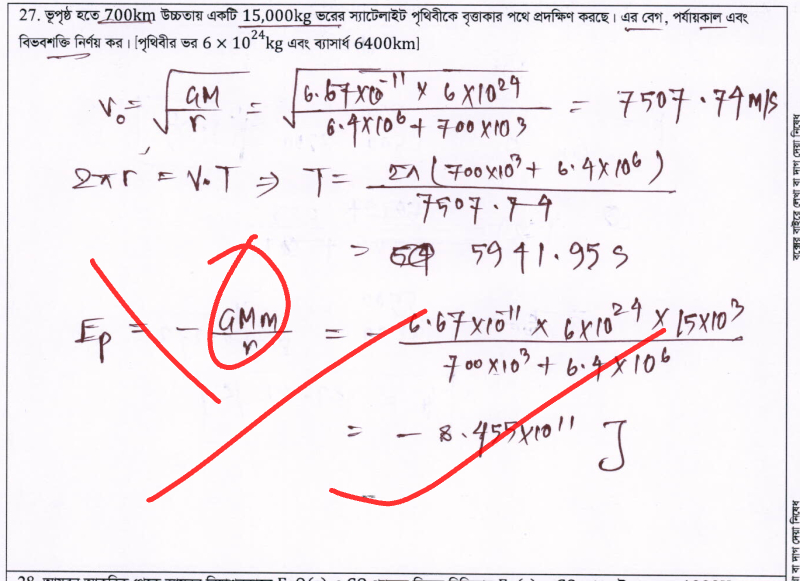 27. ভূপৃষ্ঠ হতে 700km উচ্চতায় একটি 15,000kg ভরের স্যাটেলাইট পৃথিবীকে বৃত্তাকার পথে প্রদক্ষিণ করছে। এর বেগ, পর্যায়কাল এবং
বিভবশক্তি নির্ণয় কর। [পৃথিবীর ভর 6 × 10²⁴kg এবং ব্যাসার্ধ 6400km]
V₀ = √(GM/r) = √((6.67×10⁻¹¹ × 6×10²⁴)/(6.4×10⁶ + 700×10³)) = 7507.74 m/s
2πr = V₀T ⇒ T = 2π(700×10³ + 6.4×10⁶)/7507.74
= 5941.95 s
Eₚ = − GMm/r = − (6.67×10⁻¹¹ × 6×10²⁴ × 15×10³)/(700×10³ + 6.4×10⁶)
= − 8.455×10¹¹ J
বক্সের বাইরে লেখা বা দাগ দেয়া নিষেধ
বা দাগ দেয়া নিষেধ